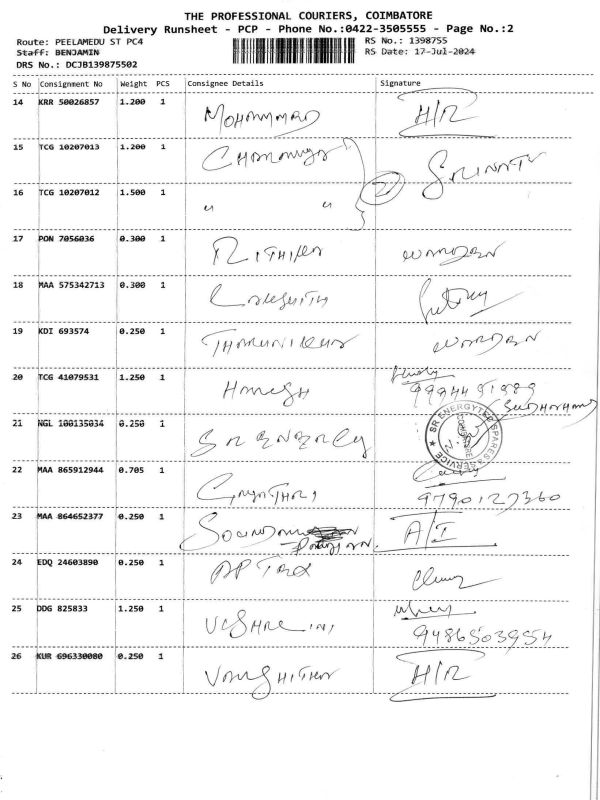 THE PROFESSIONAL COURIERS, COIMBATORE
Delivery Runsheet - PCP - Phone No.:0422-3505555 - Page No.:2
Route: PEELAMEDU ST PC4 RS No.: 1398755
Staff: BENJAMIN RS Date: 17-Jul-2024
DRS No.: DCJB139875502
S No Consignment No Weight PCS Consignee Details Signature
14 KRR 50026857 1.200 1 MOHAMMAD H/R
15 TCG 10207013 1.200 1
16 TCG 10207012 1.500 1 " " 2 SRINATH
17 PON 7056036 0.300 1 RITHIKA WARDEN
18 MAA 575342713 0.300 1
19 KDI 693574 0.250 1 THARUNIKAA WARDEN
20 TCG 41079531 1.250 1 HAMEGH
SUDHARHAN
21 NGL 100135034 0.250 1 SR ENERGY SR ENERGYTEK SPARES & SERVICE
22 MAA 865912944 0.705 1 GAYATHRI 9790127360
23 MAA 864652377 0.250 1 A/I
24 EDQ 24603890 0.250 1
25 DDG 825833 1.250 1 9486503954
26 KUR 696330080 0.250 1 H/R